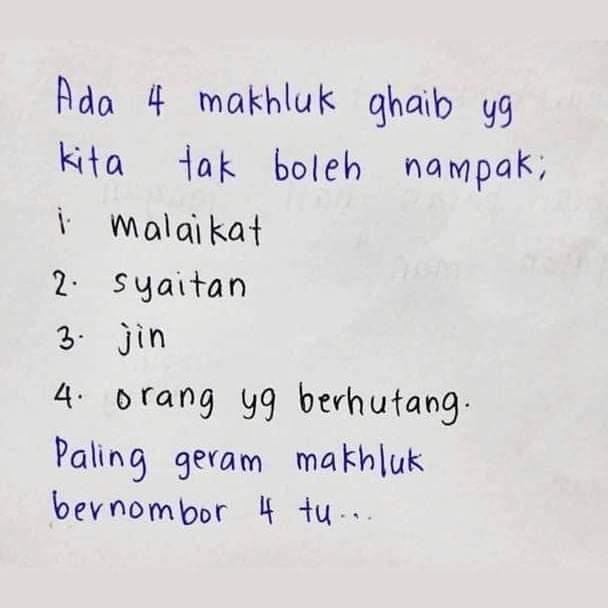 Ada 4 makhluk ghaib yg
kita tak boleh nampak;
1. malaikat
2. syaitan
3. jin
4. orang yg berhutang.
Paling geram makhluk
bernombor 4 tu...